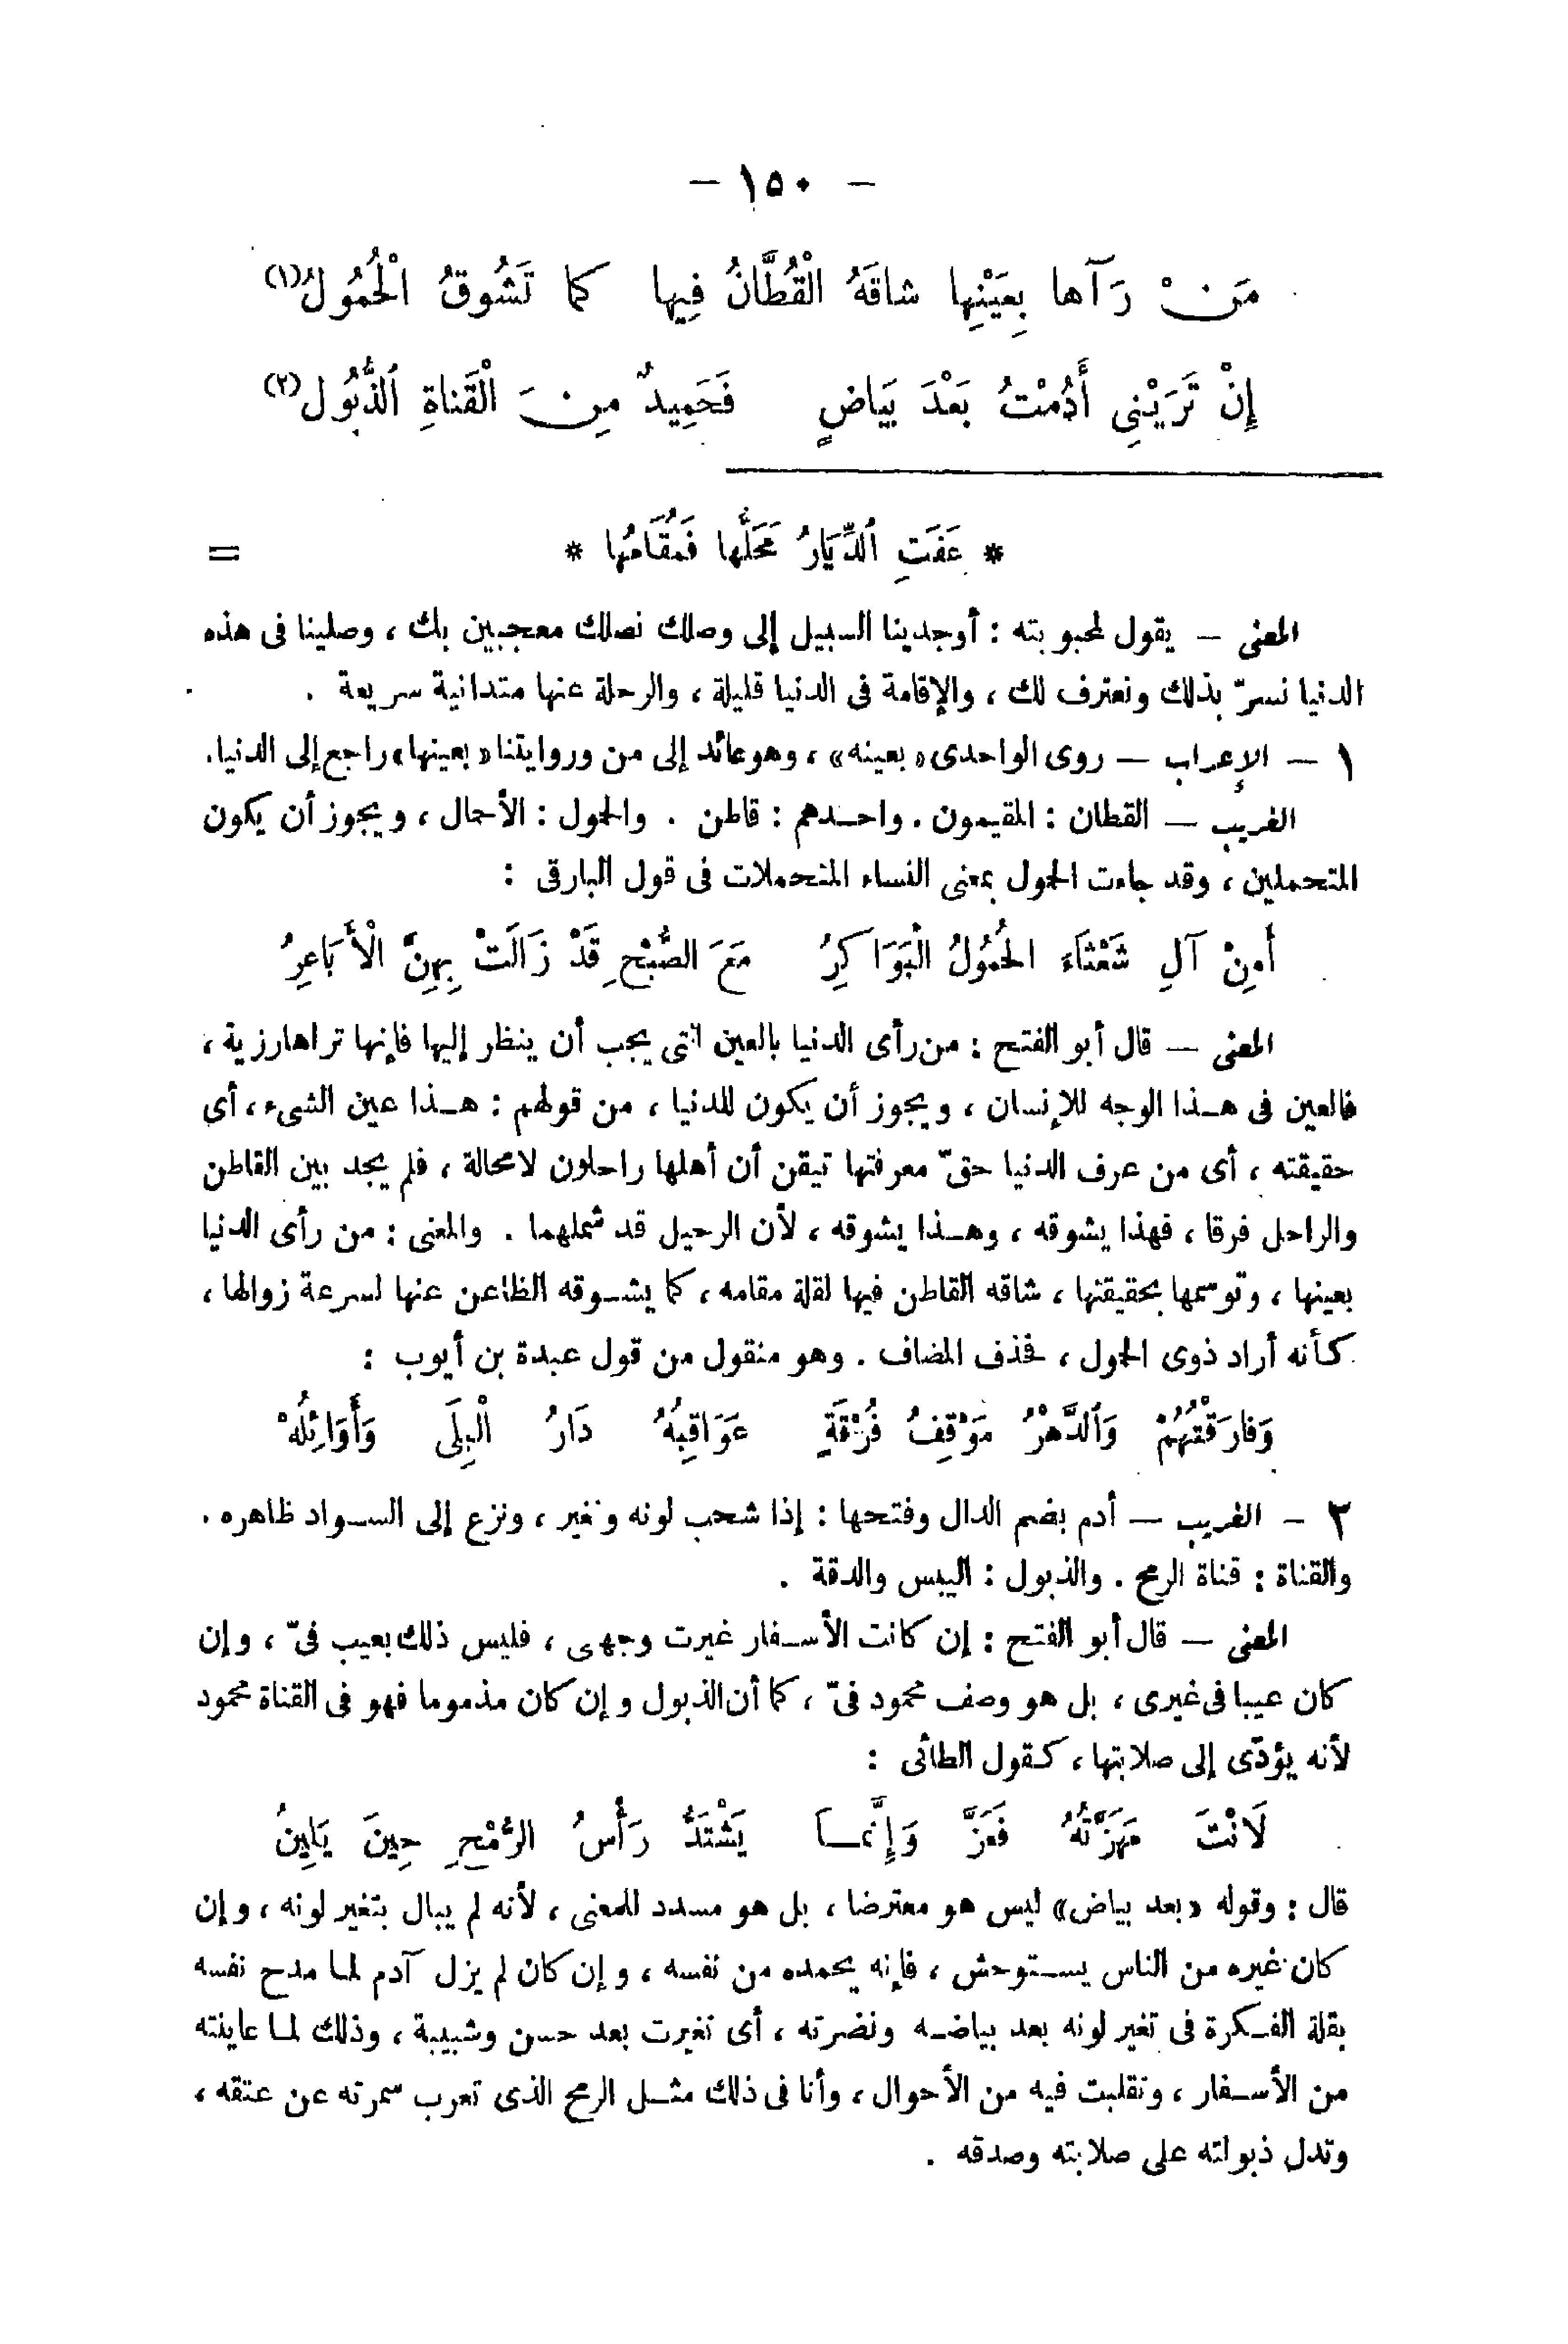 — ١٥٠ —
مَنْ رَآها بِعَيْنِها شاقَهُ الْقُطَّانُ فِيها كما تَشُوقُ الْحُمُولُ (١)
إِنْ تَرَيْنِى أَدُمْتُ بَعْدَ بَيَاضٍ فَحَمِيدٌ مِنَ الْقَناةِ الذُّبُول (٢)
* عَفَتِ الدِّيَارُ مَحَلُّها فَمُقَامُها * =
المعنى — يقول لمحبوبته : أوجدينا السبيل إلى وصلك نصلك معجبين بك ، وصلينا فى هذه
الدنيا نسرّ بذلك ونعترف لك ، والإقامة فى الدنيا قليلة ، والرحلة عنها متدانية سريعة .
١ — الإعراب — روى الواحدى « بعينه » ، وهو عائد إلى من وروايتنا « بعينها » راجع إلى الدنيا .
الغريب — القطان : المقيمون . واحدهم : قاطن . والحمول : الأحمال ، ويجوز أن يكون
المتحملين ، وقد جاءت الحمول بمعنى النساء المتحملات فى قول البارقى :
أَمِنْ آلِ شَعْثَاءَ الحُمُولُ الْبَوَاكِرُ مَعَ الصُّبْحِ قَدْ زَالَتْ بِهِنَّ الْأَبَاعِرُ
المعنى — قال أبو الفتح : من رأى الدنيا بالعين التى يجب أن ينظر إليها فإنها تراها رزية ،
فالعين فى هذا الوجه للإنسان ، ويجوز أن يكون للدنيا ، من قولهم : هذا عين الشىء ، أى
حقيقته ، أى من عرف الدنيا حقّ معرفتها تيقن أن أهلها راحلون لامحالة ، فلم يجد بين القاطن
والراحل فرقا ، فهذا يشوقه ، وهذا يشوقه ، لأن الرحيل قد شملهما . والمعنى : من رأى الدنيا
بعينها ، وتوسمها بحقيقتها ، شاقه القاطن فيها لقلة مقامه ، كما يشوقه الظاعن عنها لسرعة زوالها ،
كأنه أراد ذوى الحمول ، فحذف المضاف . وهو منقول من قول عبدة بن أيوب :
وَفارَقْتُهُمْ وَالدَّهْرُ مَوْقِفُ فُرْقَةٍ عَوَاقِبُهُ دَارُ الْبِلَى وَأَوَائِلُهْ
٢ - الغريب — أدم بضم الدال وفتحها : إذا شحب لونه وتغير ، ونزع إلى السواد ظاهره .
والقناة : قناة الرمح . والذبول : اليبس والدقة .
المعنى — قال أبو الفتح : إن كانت الأسفار غيرت وجهى ، فليس ذلك بعيب فىّ ، وإن
كان عيبا فى غيرى ، بل هو وصف محمود فىّ ، كما أن الذبول وإن كان مذموما فهو فى القناة محمود
لأنه يؤدّى إلى صلابتها ، كقول الطائى :
لَانْتَ مَهَزَّتُهُ فَعَزَّ وَإِنَّمَا يَشْتَدُّ رَأْسُ الرُّمْحِ حِينَ يَلِينُ
قال : وقوله « بعد بياض » ليس هو معترضا ، بل هو مسدد للمعنى ، لأنه لم يبال بتغير لونه ، وإن
كان غيره من الناس يستوحش ، فإنه يحمده من نفسه ، وإن كان لم يزل آدم لما مدح نفسه
بقلة الفكرة فى تغير لونه بعد بياضه ونضرته ، أى تغيرت بعد حسن وشبيبة ، وذلك لما عاينته
من الأسفار ، وتقلبت فيه من الأحوال ، وأنا فى ذلك مثل الرمح الذى تعرب سمرته عن عتقه ،
وتدل ذبولته على صلابته وصدقه .